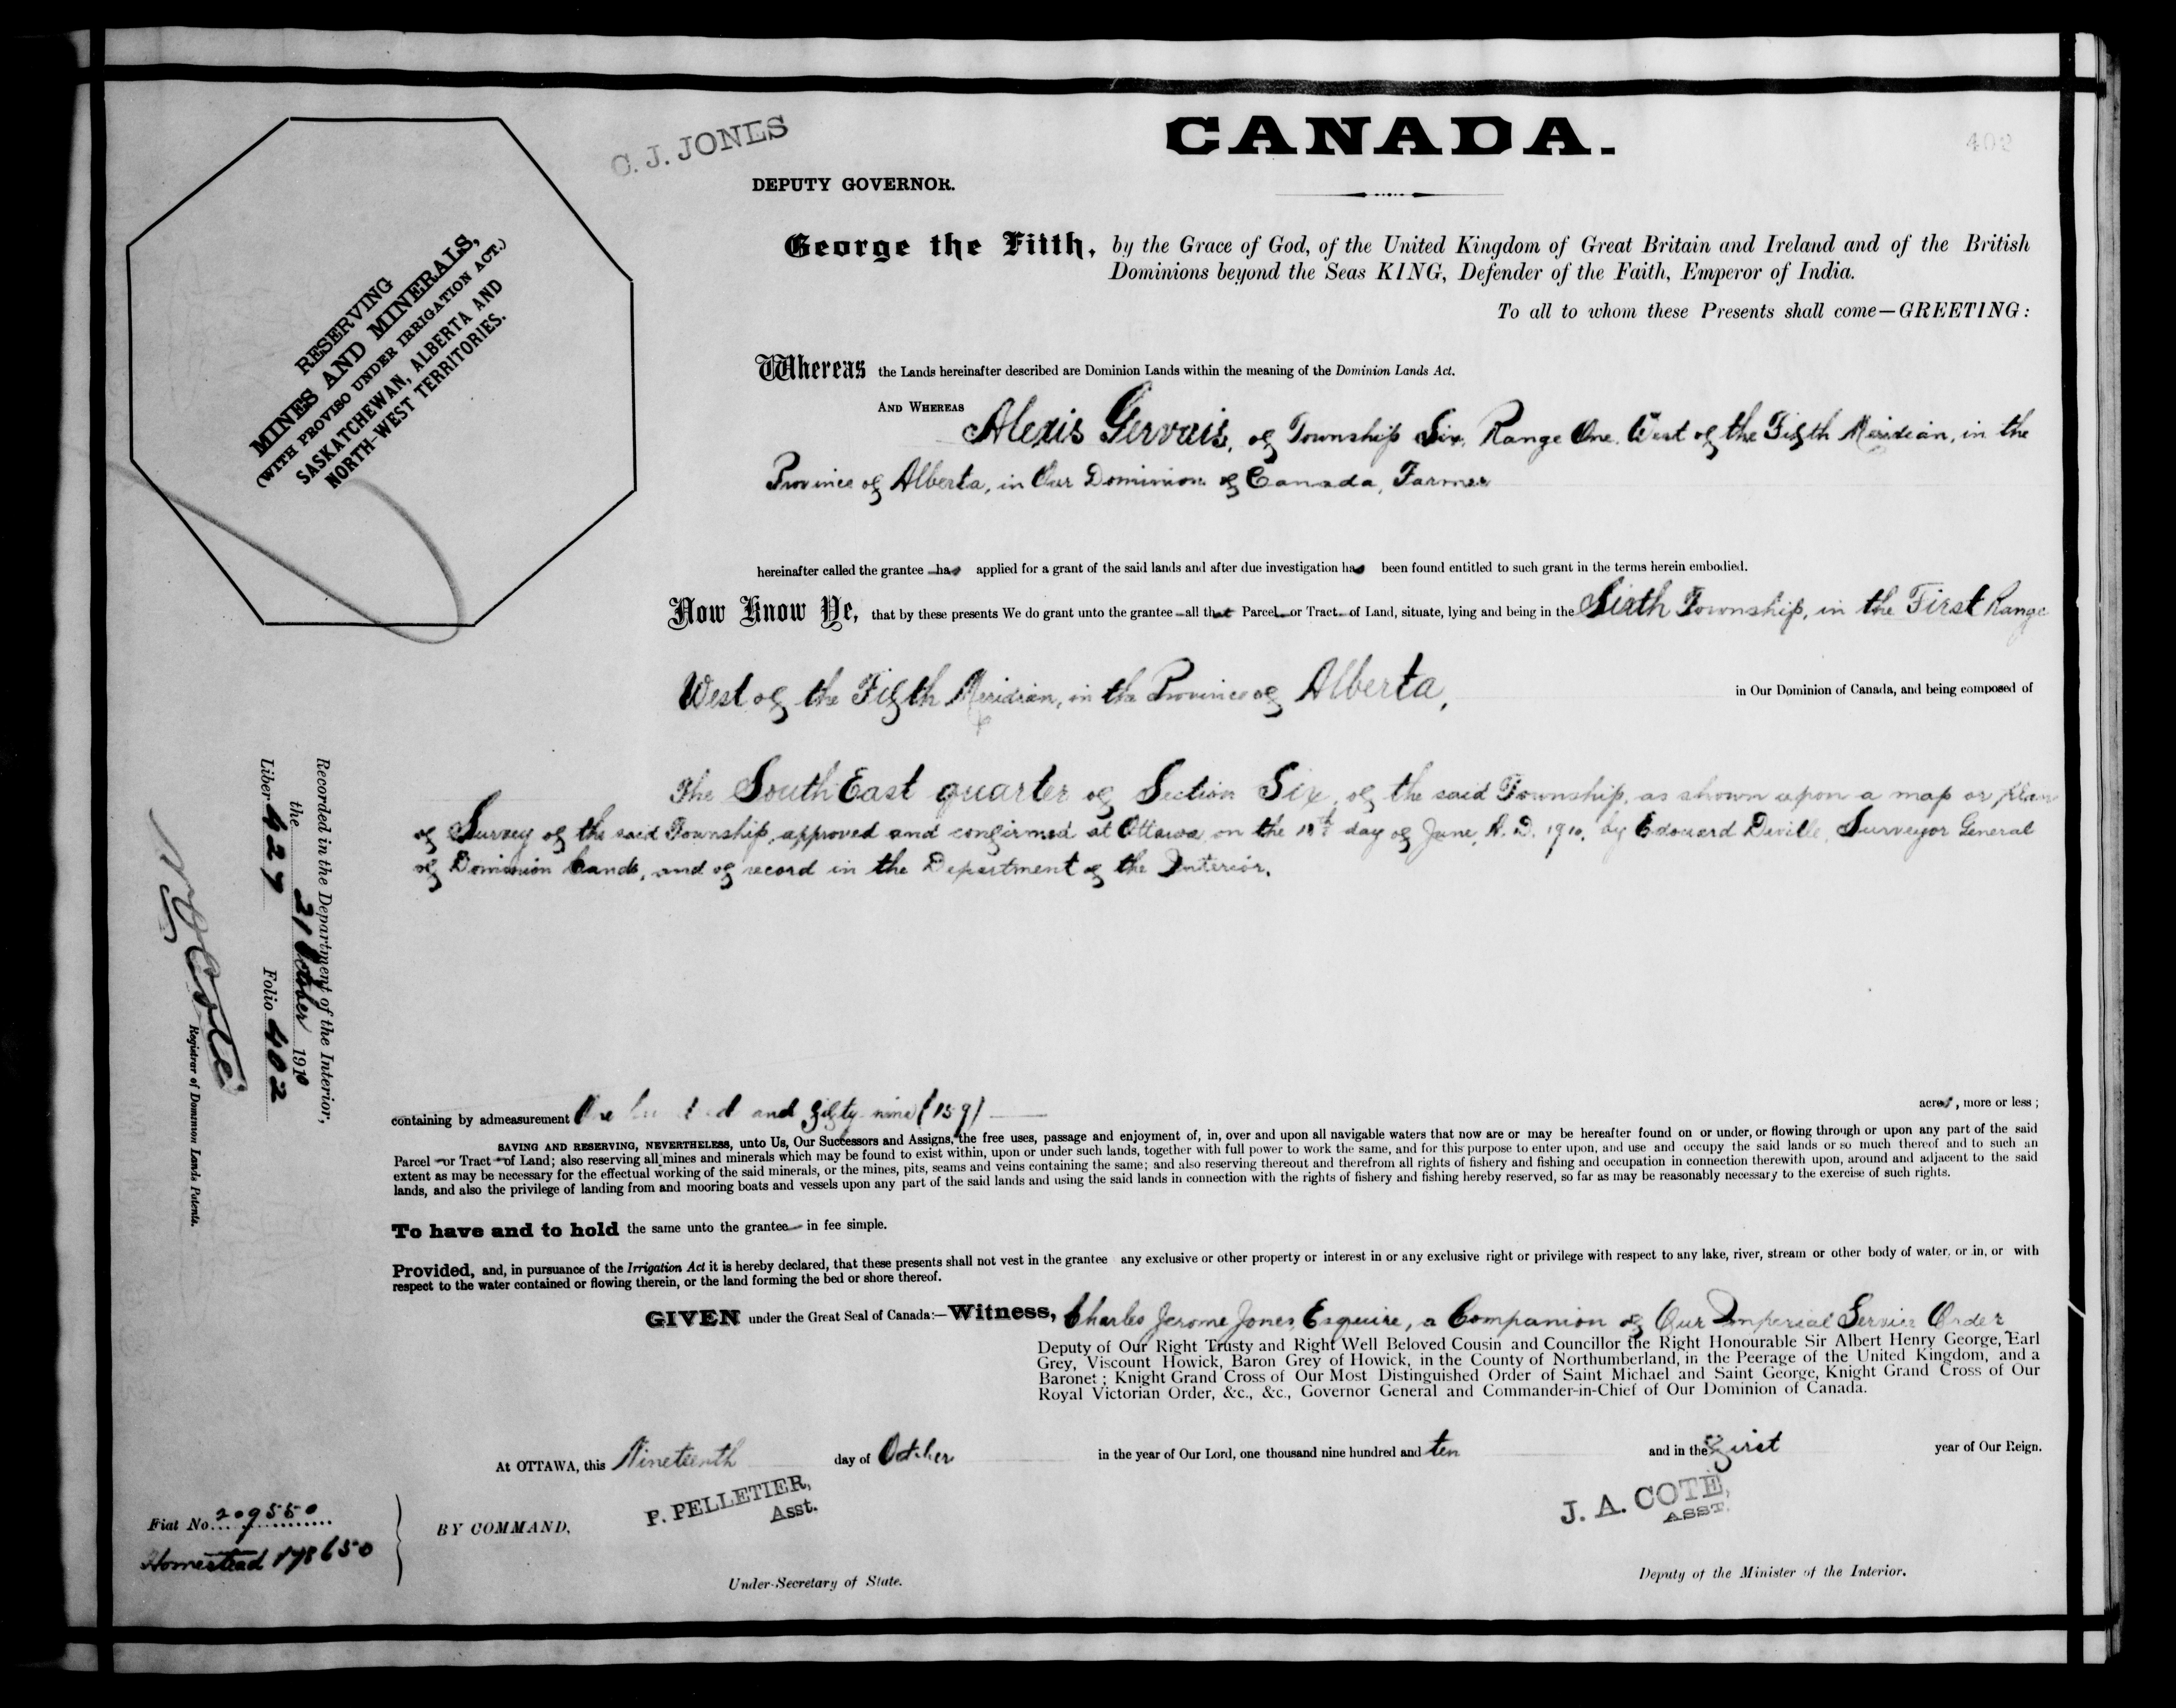 C. J. JONES
CANADA.
402
DEPUTY GOVERNOR.
George the Fifth, by the Grace of God, of the United Kingdom of Great Britain and Ireland and of the British
Dominions beyond the Seas KING, Defender of the Faith, Emperor of India.
To all to whom these Presents shall come—GREETING:
RESERVING
MINES AND MINERALS,
(WITH PROVISO UNDER IRRIGATION ACT.)
SASKATCHEWAN, ALBERTA AND
NORTH-WEST TERRITORIES.
Whereas the Lands hereinafter described are Dominion Lands within the meaning of the Dominion Lands Act.
AND WHEREAS Alexis Gervais, of Township Six, Range One, West of the Fifth Meridian, in the
Province of Alberta, in Our Dominion of Canada, Farmer
hereinafter called the grantee has applied for a grant of the said lands and after due investigation has been found entitled to such grant in the terms herein embodied.
Now Know Ye, that by these presents We do grant unto the grantee all that Parcel or Tract of Land, situate, lying and being in the Sixth Township, in the First Range
West of the Fifth Meridian, in the Province of Alberta, in Our Dominion of Canada, and being composed of
The South East quarter of Section Six, of the said Township, as shown upon a map or plan
of Survey of the said Township, approved and confirmed at Ottawa, on the 18th day of June, A.D. 1910, by Edouard Deville, Surveyor General
of Dominion Lands, and of record in the Department of the Interior.
Recorded in the Department of the Interior,
the 21 October 1910
Liber 427 Folio 402
N. O. Coté
Registrar of Dominion Lands Patents.
containing by admeasurement One hundred and fifty-nine (159) acres, more or less;
SAVING AND RESERVING, NEVERTHELESS, unto Us, Our Successors and Assigns, the free uses, passage and enjoyment of, in, over and upon all navigable waters that now are or may be hereafter found on or under, or flowing through or upon any part of the said
Parcel or Tract of Land; also reserving all mines and minerals which may be found to exist within, upon or under such lands, together with full power to work the same, and for this purpose to enter upon, and use and occupy the said lands or so much thereof and to such an
extent as may be necessary for the effectual working of the said minerals, or the mines, pits, seams and veins containing the same; and also reserving thereout and therefrom all rights of fishery and fishing and occupation in connection therewith upon, around and adjacent to the said
lands, and also the privilege of landing from and mooring boats and vessels upon any part of the said lands and using the said lands in connection with the rights of fishery and fishing hereby reserved, so far as may be reasonably necessary to the exercise of such rights.
To have and to hold the same unto the grantee in fee simple.
Provided, and, in pursuance of the Irrigation Act it is hereby declared, that these presents shall not vest in the grantee any exclusive or other property or interest in or any exclusive right or privilege with respect to any lake, river, stream or other body of water, or in, or with
respect to the water contained or flowing therein, or the land forming the bed or shore thereof.
GIVEN under the Great Seal of Canada:—Witness, Charles Jerome Jones, Esquire, a Companion of Our Imperial Service Order
Deputy of Our Right Trusty and Right Well Beloved Cousin and Councillor the Right Honourable Sir Albert Henry George, Earl
Grey, Viscount Howick, Baron Grey of Howick, in the County of Northumberland, in the Peerage of the United Kingdom, and a
Baronet; Knight Grand Cross of Our Most Distinguished Order of Saint Michael and Saint George, Knight Grand Cross of Our
Royal Victorian Order, &c., &c., Governor General and Commander-in-Chief of Our Dominion of Canada.
At OTTAWA, this Nineteenth day of October in the year of Our Lord, one thousand nine hundred and ten and in the First year of Our Reign.
P. PELLETIER,
Asst.
J. A. COTÉ,
ASST.
Fiat No. 209550
Homestead 198650
BY COMMAND,
Under-Secretary of State.
Deputy of the Minister of the Interior.